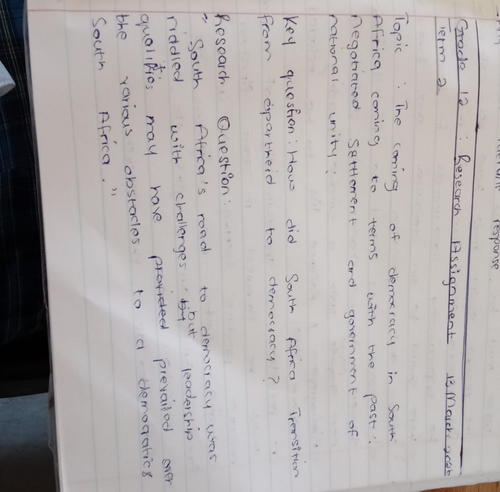 response
Grade 12 : Research Assignment 13 March
Term 2
Topic : The coming of democracy in South
Africa coming to terms with the past :
negotiated Settlement and government of
national unity.
Key question : How did South Africa Transition
from apartheid to democracy ?
Research Question :
" South Africa's road to democracy was
riddled with challenges but leadership
qualities may have provided prevailed over
the various obstacles to a democratics
South Africa . "